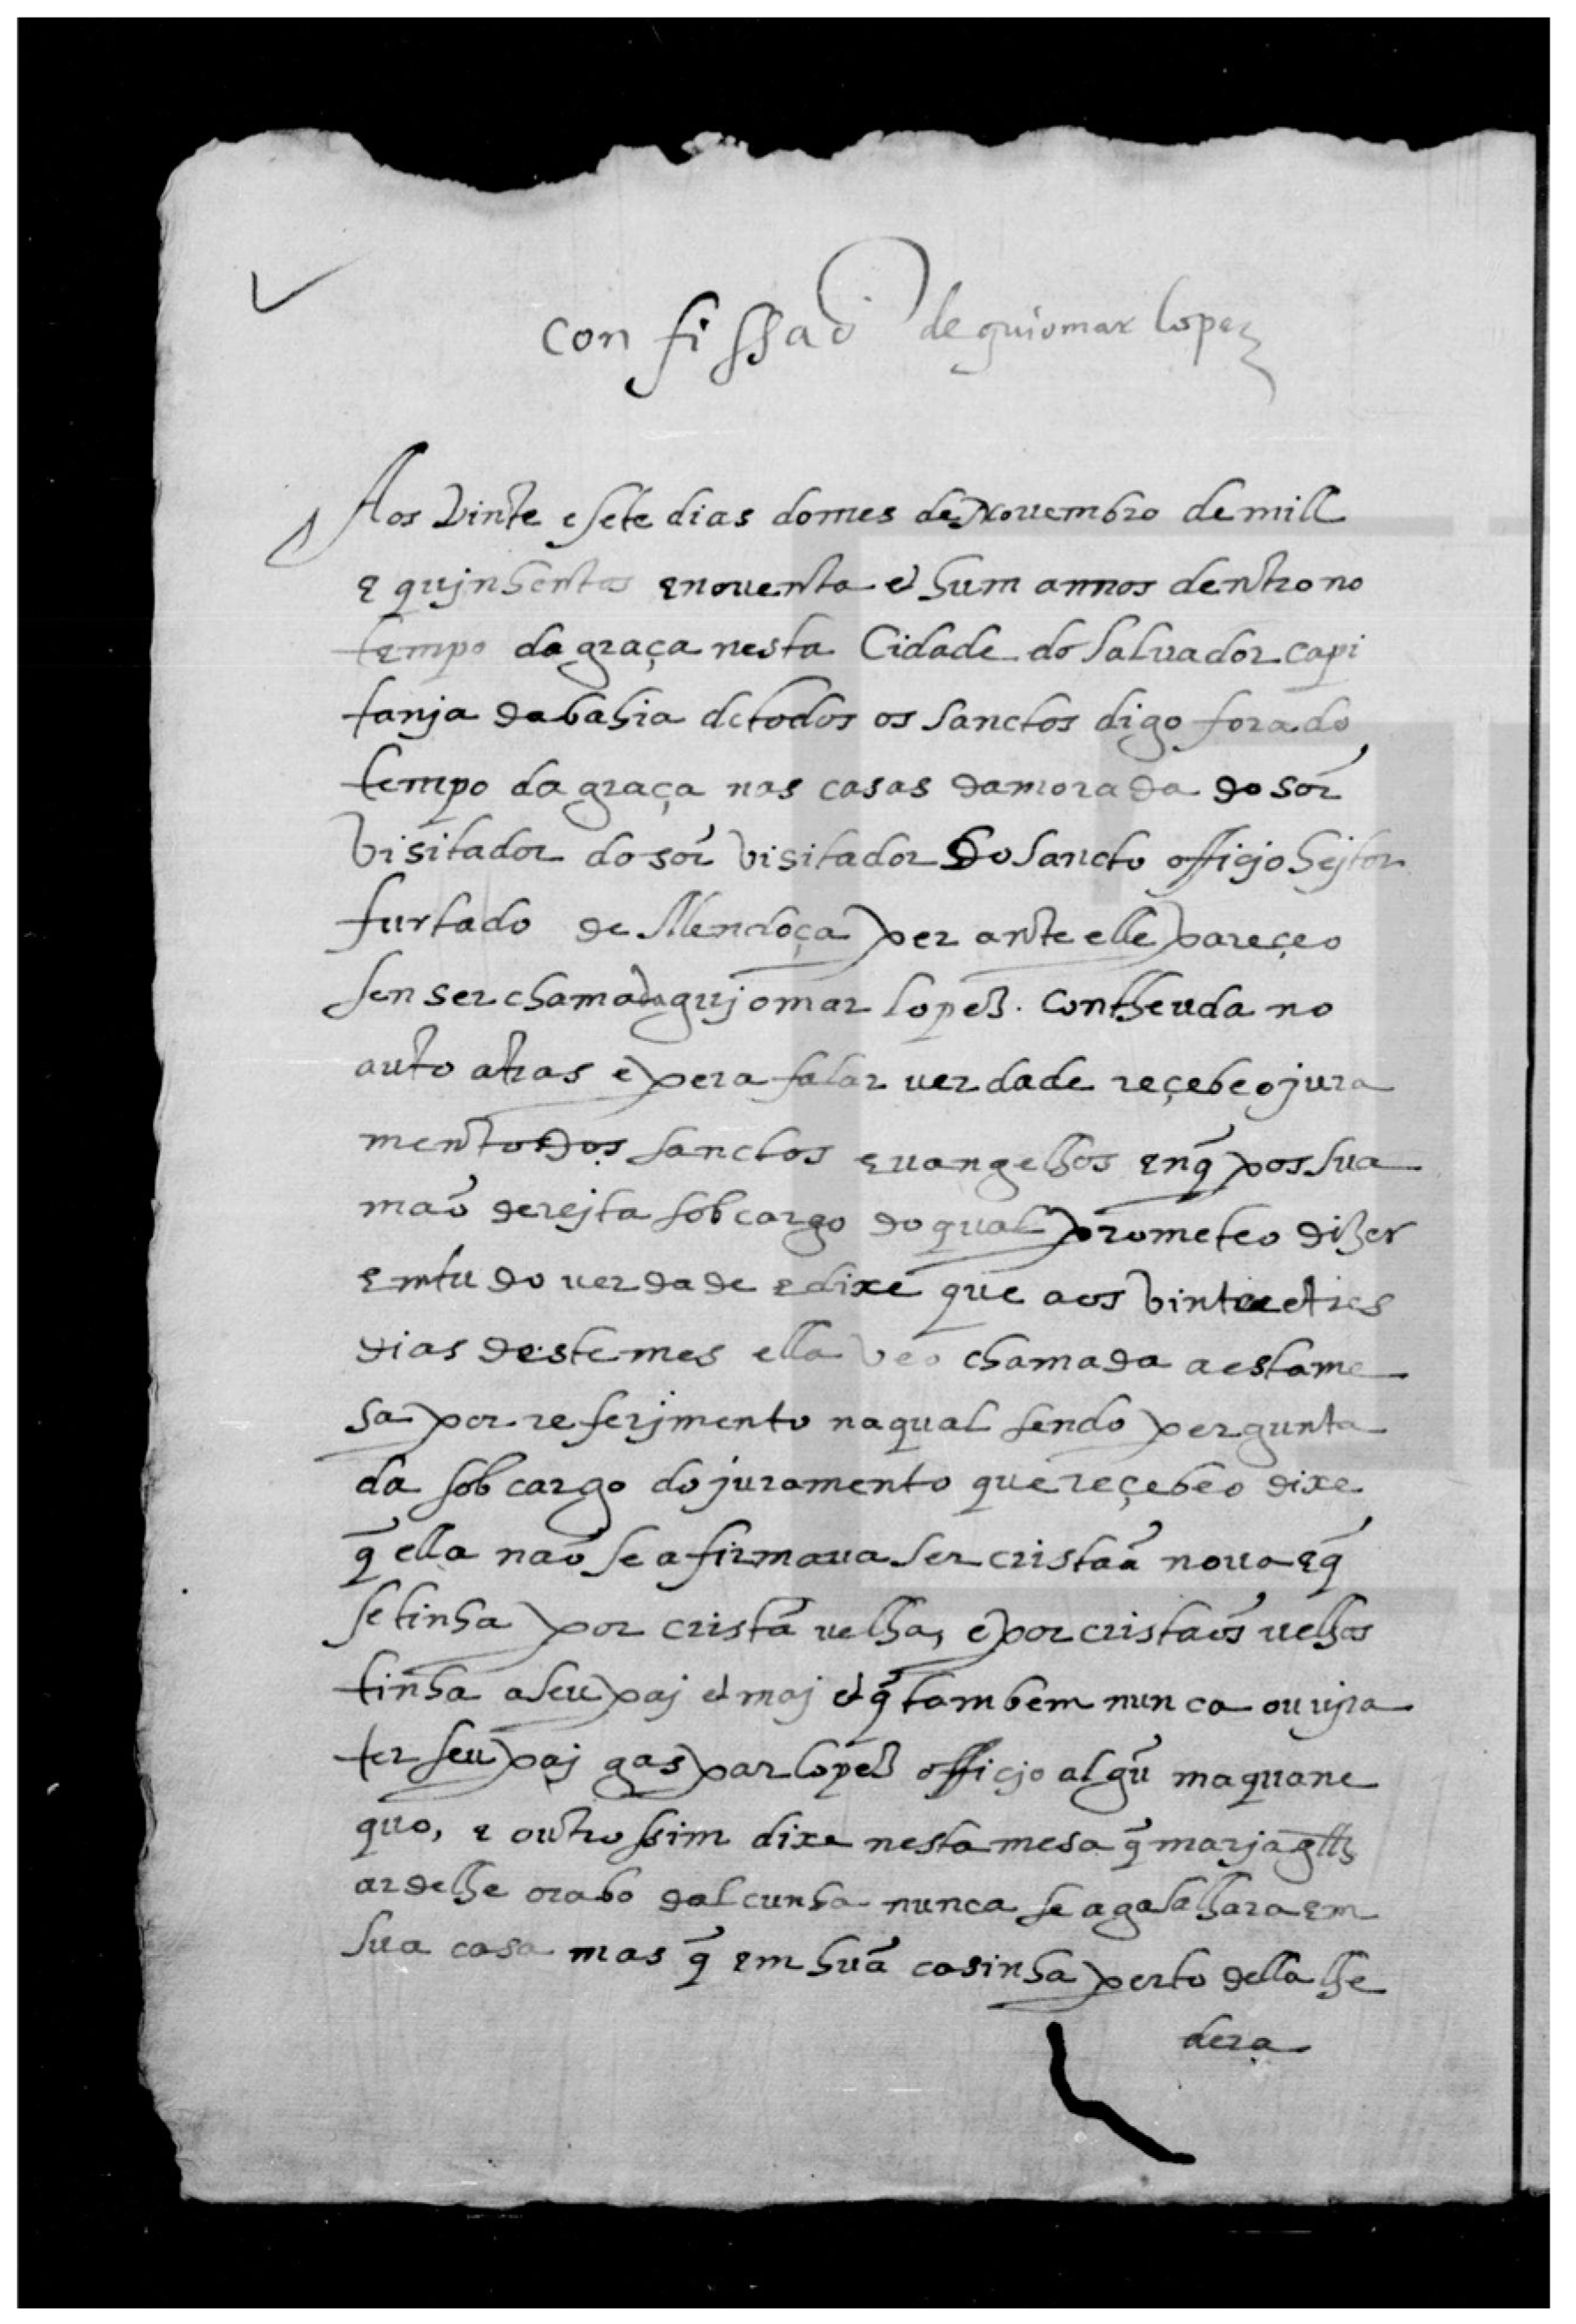 confissaõ de guiomar lopez
Aos vinte e sete dias do mes de novembro de mill
e quinhentos e noventa e hum annos dentro no
tempo da graça nesta Cidade do salvador capi
tanja da bahia de todos os sanctos digo fora do
tempo da graça nas casas da morada do sõr
visitador do sõr visitador do sancto officjo hejtor
furtado de Mendoça perante elle pareçeo
sen ser chamada gujomar lopes. contheuda no
auto atras e pera falar verdade reçebeo jura
mento dos sanctos evangelhos en q̃ pos sua
maõ derejta sob cargo do qual prometeo dizer
em tudo verdade e dixe que aos vinte e tres
dias deste mes ella veo chamada a esta me
sa por referjmento na qual sendo pergunta
da sob cargo do juramento que reçebeo dixe
q̃ ella naõ se afirmava ser cristaã nova e q̃
se tinha por cristã velha, e por cristaõs velhos
tinha a seu paj e maj e q̃ tambem nunca ouvjra
ter seu paj gaspar lopes officjo algũ maquane
quo, e outrossim dixe nesta mesa q̃ marja glz
ardelhe o rabo dalcunha nunca se agasalhara em
sua casa mas q̃ em huã casinha perto della lhe
dera